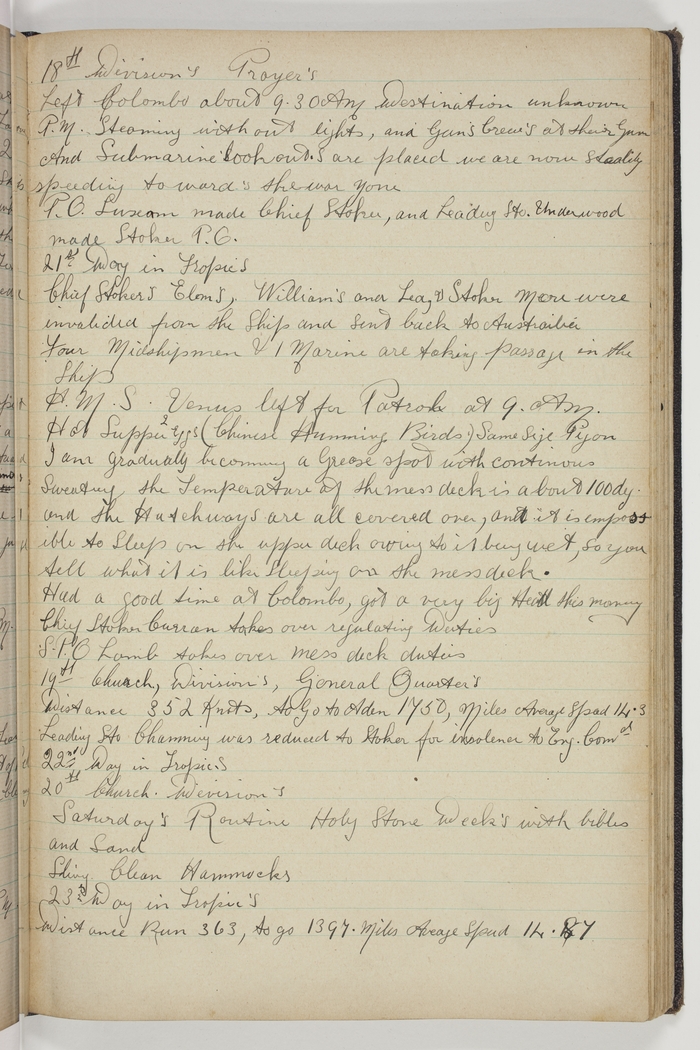 18th Division's Prayer's
Left Colombo about 9.30 AM Destination unknown
P.M. Steaming without lights, and Gun's Crew's at their Gun
And Submarine look out.s are placed we are now steadily
speeding to ward's the war zone
P.O. Luxom made Chief Stoker, and Leading Sto. Underwood
made Stoker P.O.
21st Day in Tropic's
Chief Stoker's Elom's, William's and Leadg Stoker More were
invalided from the Ship and sent back to Austrailia
Four Midshipmen & 1 Marine are taking passage in the
Ship
H.M.S. Venus left for Patrol at 9. AM.
Had Supper 2 eggs (Chinese Humming Birds) Same Size Pigon
I am gradually becoming a Grease spot with continous
Sweating the Temperature of the mess deck is about 100dg.
and the Hatchways are all covered over, and it is imposs
ible to Sleep on the upper deck owing to it being wet, so you
tell what it is like Sleeping on the mess deck.
Had a good time at Colombo, got a very big Head this morning
Chief Stoker Curran takes over regulating Duties
S.P.O Lamb takes over mess deck duties
19th Church, Division's, General Quarter's
Distance 352 Knots, to Go to Aden 1750, Miles Average Spead 14.3
Leading Sto Channing was reduced to Stoker for insolence to Eng. Comd
22nd Day in Tropics
20th Church. Devision's
Saturday's Routine Holy Stone Deck's with bibles
and Sand
Sling Clean Hammocks
23rd Day in Tropic's
Distance Run 363, to go 1397. Miles Average Spead 14.87